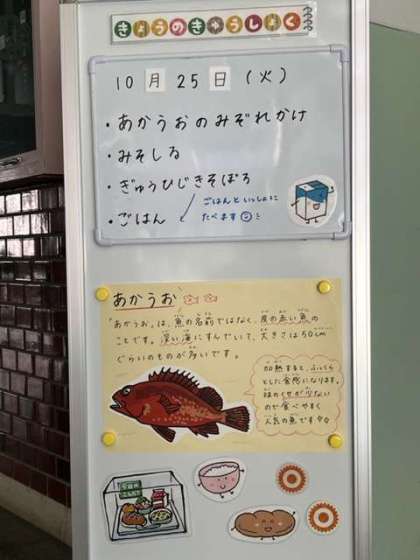 きょうのきゅうしょく
10月25日(火)
・あかうおのみぞれかけ
・みそしる
・ぎゅうひじきそぼろ
ごはんといっしょに
たべます
・ごはん
あかうお
「あかうお」は、魚の名前ではなく、皮の赤い魚の
ことです。深い海にすんでいて、大きさは50cm
ぐらいのものが多いです。
加熱すると、ふっくら
とした食感になります。
味のくせが少ない
ので食べやすく
人気の魚です